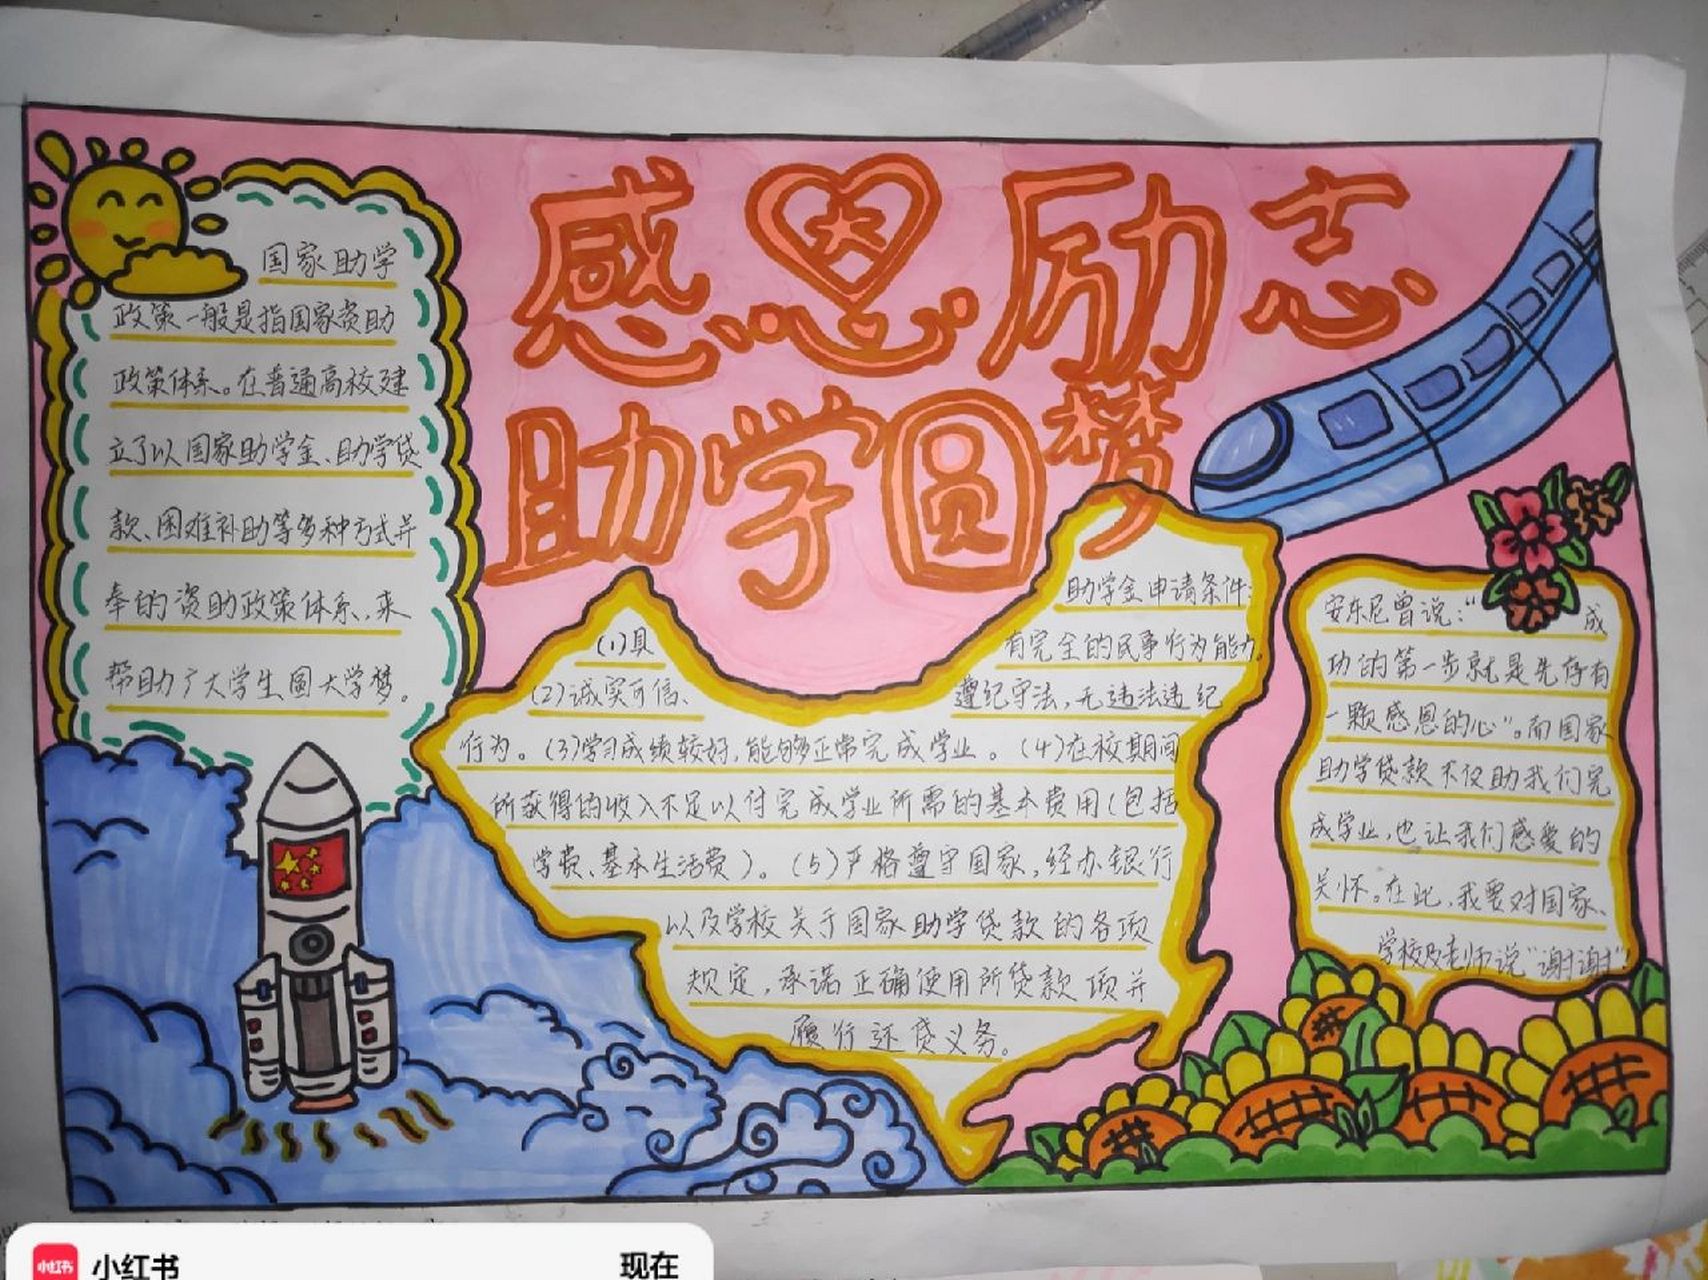 感恩励志
助学圆梦
国家助学
政策一般是指国家资助
政策体系。在普通高校建
立了以国家助学金、助学贷
款、困难补助等多种方式并
奉的资助政策体系,来
帮助广大学生圆大学梦。
助学金申请条件:
(1)具 有完全的民事行为能力。
(2)诚实可信、 遵纪守法,无违法违纪
行为。(3)学习成绩较好,能够正常完成学业。(4)在校期间
所获得的收入不足以付完成学业所需的基本费用(包括
学费、基本生活费)。(5)严格遵守国家,经办银行
以及学校关于国家助学贷款的各项
规定,承诺正确使用所贷款项并
履行还贷义务。
安东尼曾说:“成
功的第一步就是先存有
一颗感恩的心”。而国家
助学贷款不仅助我们完
成学业,也让我们感受的
关怀。在此,我要对国家、
学校及老师说“谢谢”!
小红书 现在